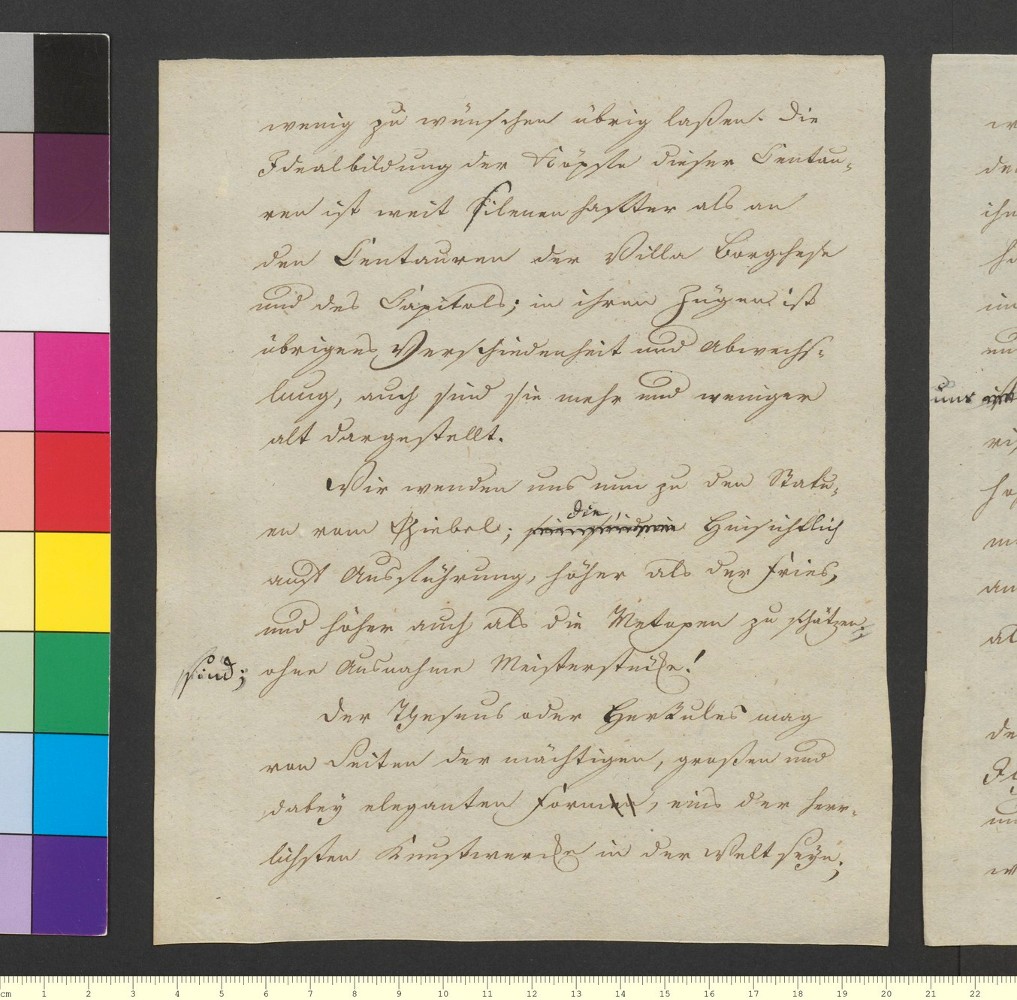 wenig zu wünschen übrig laßen. Die
Idealbildung der Köpfe dieser Centau-
ren ist weit silenenhaffter als an
den Centauren der Villa Borghese
und des Capitols; in ihren Zügen ist
übrigens Verschiedenheit und Abwechs-
lung, auch sind sie mehr und weniger
alt dargestellt.
Wir wenden uns nun zu den Statu-
die
en vom Giebel; Hinsichtlich
auf Ausführung, höher als der Fries,
und höher auch als die Metopen zu schätzen
sind; ohne Ausnahme Meisterstücke!
Der Theseus oder Herkules mag
von Seiten der mächtigen, großen und
dabey eleganten Formen, eins der herr-
lichsten Kunstwercke in der Welt seyn;
uns